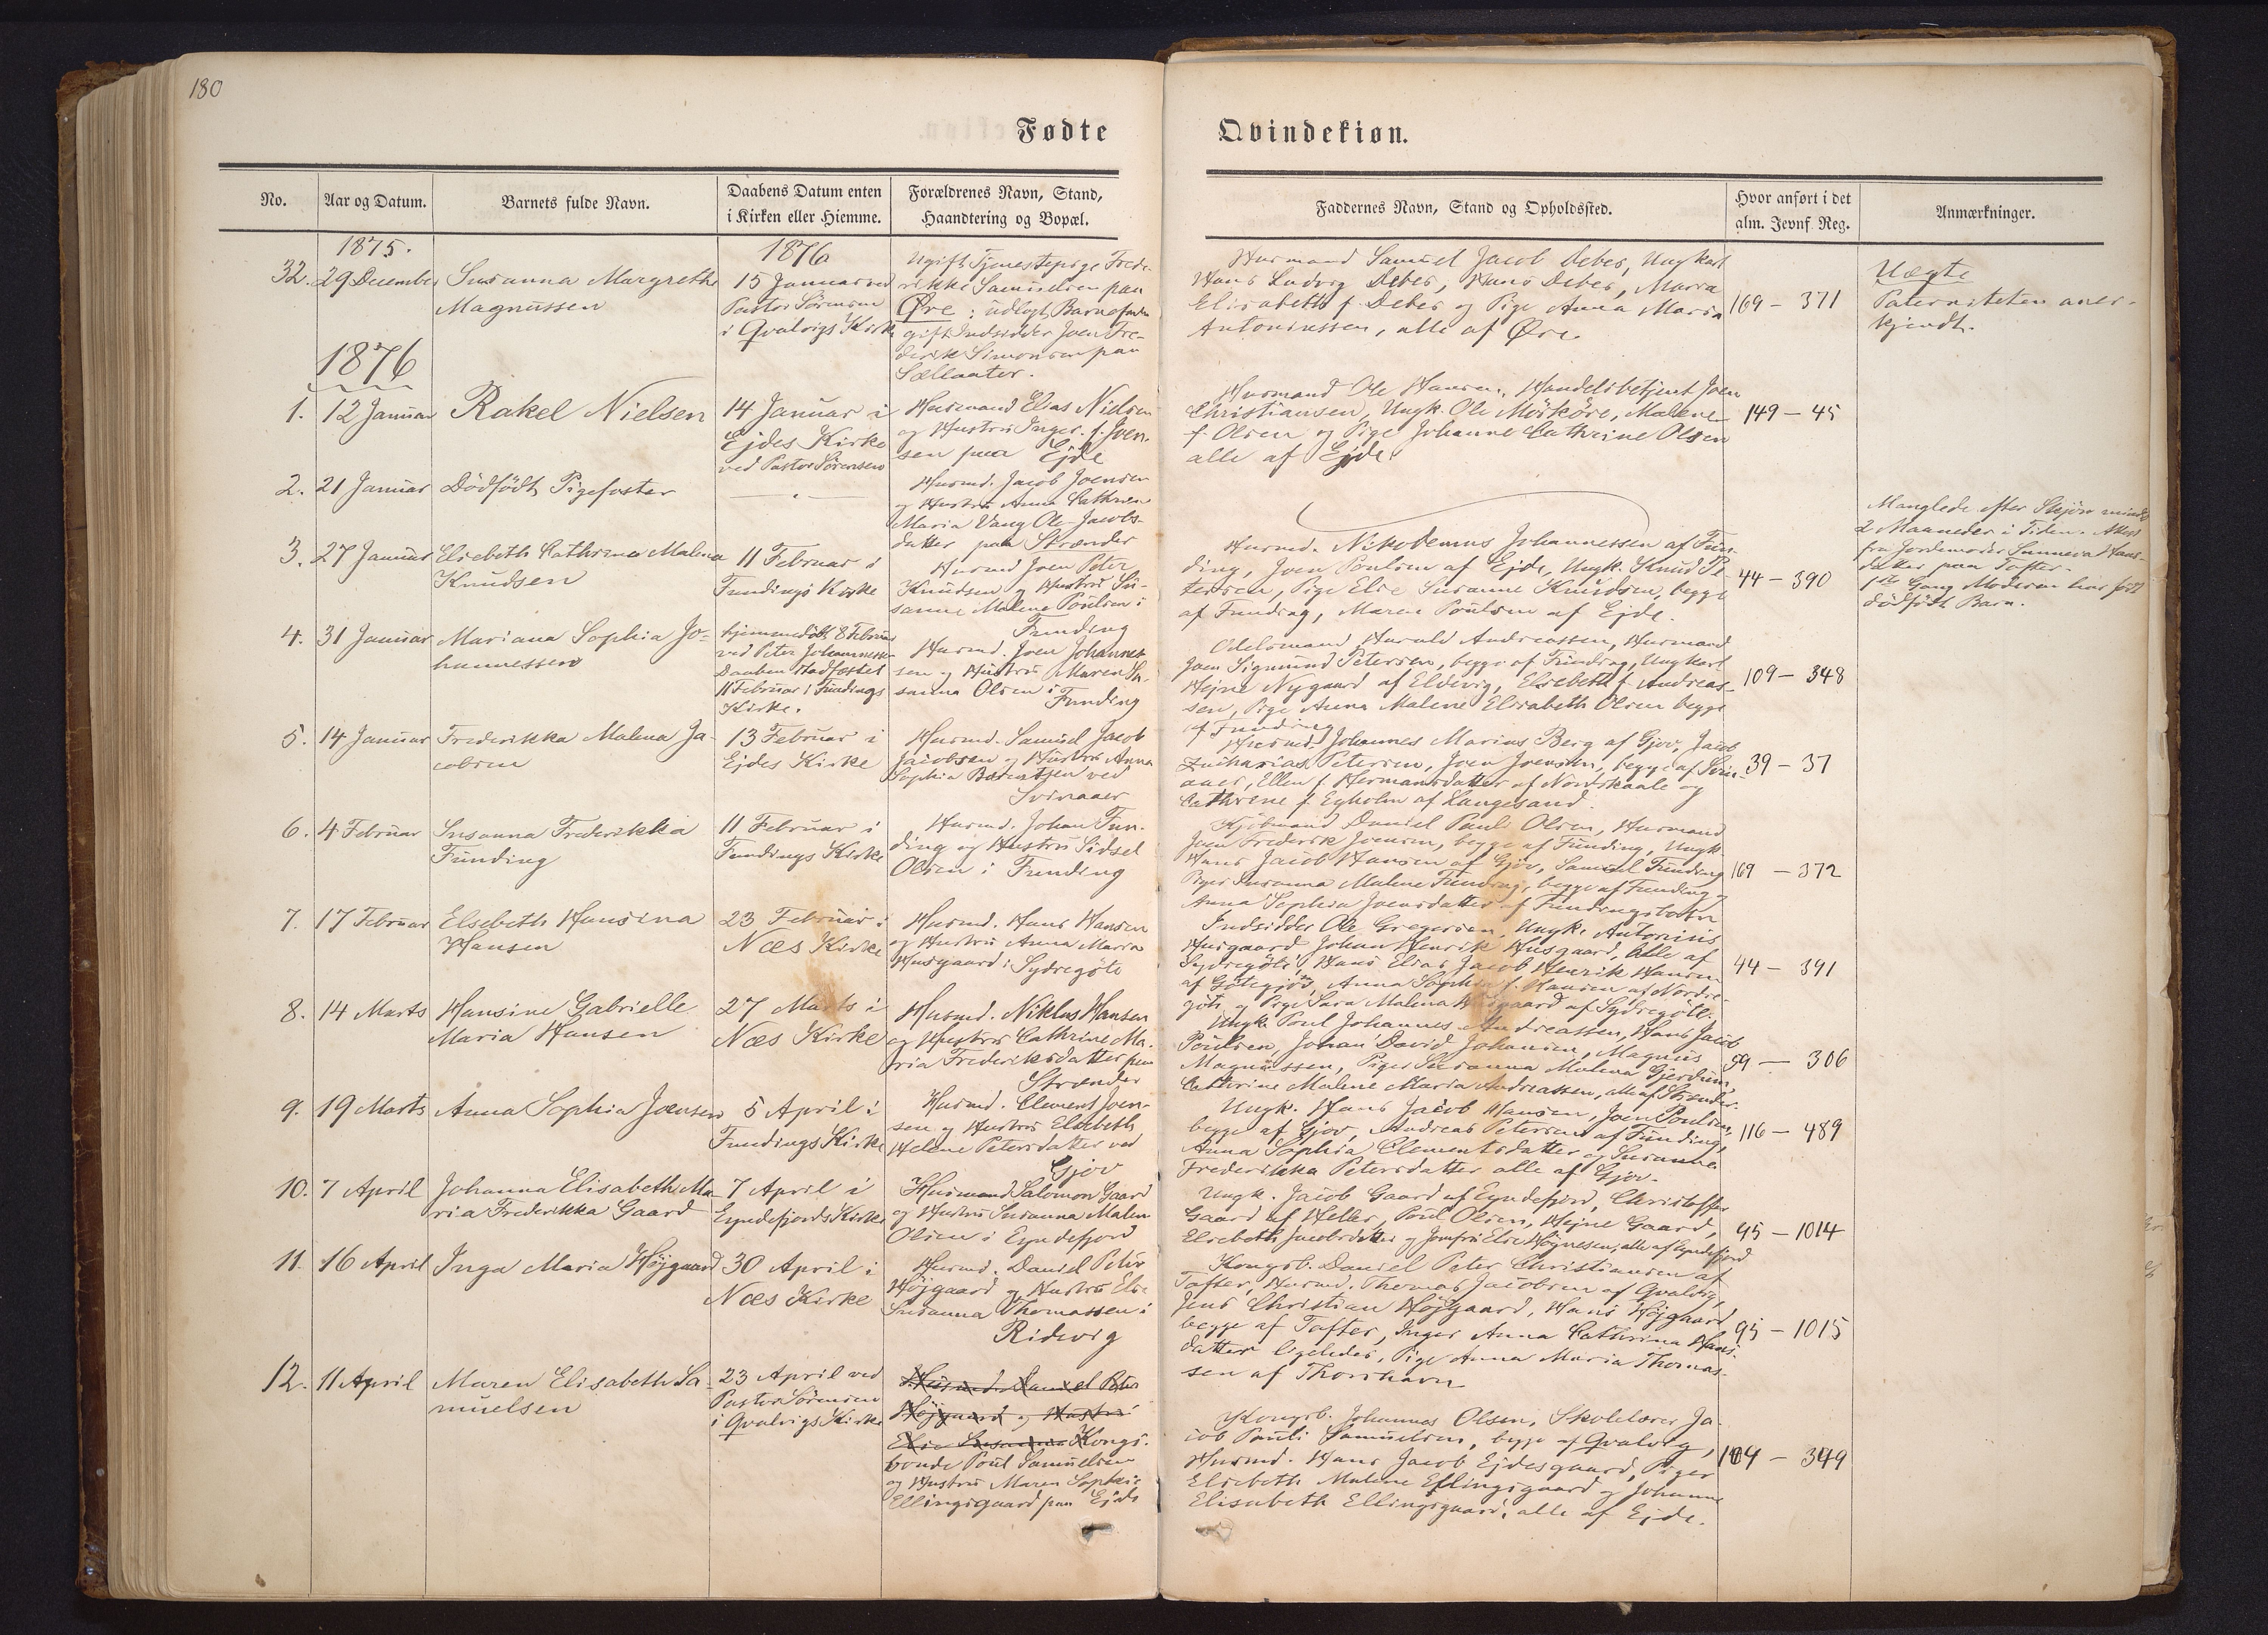 180
Fødte
Qvindekiøn.
No.
Aar og Datum.
Barnets fulde Navn.
Daabens Datum enten
i Kirken eller Hiemme.
Forældrenes Navn, Stand,
Haandtering og Bopæl.
Faddernes Navn, Stand og Opholdssted.
Hvor anført i det
alm. Jevnf. Reg.
Anmærkninger.
1875.
32. 29 December
Susanna Margretha
Magnussen
1876
15 Januar ved
Pastor Sørensen
i Qvalvigs Kirke
Ugift Tjenestepige Frede-
rikke Samuelsen paa
Øre: udlagt Barnefader
gift Indsidder Joen Fre-
derik Simonsen paa
Sellaater.
Husmand Samuel Jacob Debes, Ungkarl
Hans Ludvig Debes, Hans Debes, Maria
Elisabeth f. Debes og Pige Anna Maria
Antoniussen, alle af Øre.
169 - 371
Uægte
Paterniteten aner-
kjendt.
1876
1. 12 Januar
Rakel Nielsen
14 Januar i
Ejdes Kirke
ved Pastor Sørensen
Husmand Elias Nielsen
og Hustru Inger f. Joen-
sen paa Ejde
Husmand Ole Hansen, Handelsbetjent Joen
Christiansen, Ungk. Ole Mörköre, Malene
f. Olsen og Pige Johanne Cathrine Olsen
alle af Ejde.
149 - 45
2. 21 Januar
Dödfödt Pigefoster
Husmd. Jacob Joensen
og Hustru Anna Cathrine
Maria Vang Ole Jacobs-
datter paa Strænder
Manglede efter Skjøn mindst
2 Maaneder i Tiden. Attest
fra Jordemoder Sunneva Hans-
datter paa Tofter.
1ste Gang Moderen har født
dødfødt Barn.
3. 27 Januar
Elsebeth Cathrina Malena
Knudsen
11 Februar i
Fundings Kirke
Husmd Joen Peter
Knudsen og Hustru Su-
sanne Malene Poulsen i
Funding
Husmd. Nikodemus Johannessen af Fun-
ding, Joen Poulsen af Ejde, Ungk. Knud Pe-
tersen, Pige Else Susanne Knudsen, begge
af Funding, Maren Poulsen af Ejde.
44 - 390
4. 31 Januar
Mariana Sophia Jo-
hannessen
hjemmedøbt 8 Februar
ved Peter Johannessen
Daaben stadfæstet
11 Februar i Fundings
Kirke.
Husmd. Joen Johannes-
sen og Hustru Maren Su-
sanna Olsen i
Funding
Odelsmand Harald Andreassen, Husmand
Joen Sigmund Petersen, begge af Funding, Ungkarl
Hejne Nygaard af Eldevig, Elsebeth f. Andreas-
sen, Pige Anna Malene Elisabeth Olsen begge
af Funding
109 - 348
5. 14 Januar
Frederikka Malena Ja-
cobsen
13 Februar i
Ejdes Kirke
Husmd. Samuel Jacob
Jacobsen og Hustru Anna
Sophia Bærentsen ved
Svinaaer
Husmd. Johannes Marius Berg af Gjov, Jacob
Zacharias Petersen, Joen Joensen, begge af Svin-
aaer, Ellen f. Hermansdatter af Nordskaale og
Cathrine f. Egholm af Langesand.
39 - 37
6. 4 Februar
Susanna Frederikka
Funding
11 Februar i
Fundings Kirke
Husmd. Johan Fun-
ding og Hustru Sidsel
Olsen i Funding
Kjöbmand Daniel Pauli Olsen, Husmand
Joen Frederik Joensen, begge af Funding, Ungk.
Hans Jacob Hansen af Gjov, Samuel Funding
Piger Susanna Malene Funding, begge af Funding,
Anna Sophia Joensdatter af Fundingsbotn
169 - 372
7. 17 Februar
Elsebeth Hansina
Hansen
23 Februar i
Næs Kirke
Husmd. Hans Hansen
og Hustru Anna Maria
Husgaard i Sydregöte
Indsidder Ole Gregersen, Ungk. Antonius
Husgaard Johan Henrik Husgaard, Alle af
Sydregöte, Hans Elias Jacob Henrik Hansen
af Götegjov, Anna Sophia f. Hansen af Nordre-
göte og Pige Sara Malena Husgaard af Sydregöte.
44 - 391
8. 14 Marts
Hansine Gabrielle
Maria Hansen
27 Marts i
Næs Kirke
Husmd. Niklas Hansen
og Hustru Cathrine Ma-
ria Frederiksdatter paa
Strænder
Ungk. Poul Johannes Andreassen, Hans Jacob
Poulsen Johan David Johansen, Magnus
Magnussen, Piger Susanna Malena Gjerdum,
Cathrine Malene Maria Andreassen, alle af Strænder.
59 - 306
9. 19 Marts
Anna Sophia Joensen
5 April i
Fundings Kirke
Husmd. Clement Joen-
sen og Hustru Elsebeth
Helene Petersdatter ved
Gjov
Ungk. Hans Jacob Hansen, Joen Poulsen,
begge af Gjov, Andreas Petersen af Funding,
Anna Sophia Clementsdatter og Susanna
Frederikka Petersdatter alle af Gjov.
116 - 489
10. 7 April
Johanna Elisabeth Ma-
ria Frederikka Gaard
7 April i
Eyndefjords Kirke
Husmand Salomon Gaard
og Hustru Susanna Malene
Olsen i Eyndefjord
Ungk. Jacob Gaard af Eyndefjord, Christoffer
Gaard af Heller, Poul Olsen, Hejne Gaard,
Elsebeth Jacobsdatter og Jomfru Else Högnesen, alle af Eyndefjord
95 - 1014
11. 16 April
Inga Maria Höjgaard
30 April i
Næs Kirke
Husmd. Daniel Peter
Höjgaard og Hustru Else
Susanna Thomassen i
Ridevig
Kongsb. Daniel Peter Christiansen af
Tofter, Husmd. Thomas Jacobsen af Qvalvig,
Jens Christian Höjgaard, Hans Höjgaard
begge af Tofter, Inger Anna Cathrina Hans-
datter ligeledes, Pige Anna Maria Thomas-
sen af Thorshavn
95 - 1015
12. 11 April
Maren Elisabeth Sa-
muelsen
23 April ved
Pastor Sørensen
i Qvalvigs Kirke
Husmd. Daniel Peter
Höjgaard og Hustru
Else Susanna Kongs-
bonde Poul Samuelsen
og Hustru Maren Sophie
Ellingsgaard paa Ejde
Kongsb. Johannes Olsen, Skolelærer Ja-
cob Pauli Samuelsen, begge af Qvalvig,
Husmd. Hans Jacob Ejdesgaard, Piger
Elsebeth Malene Ellingsgaard og Johanne
Elisabeth Ellingsgaard, alle af Ejde.
109 - 349